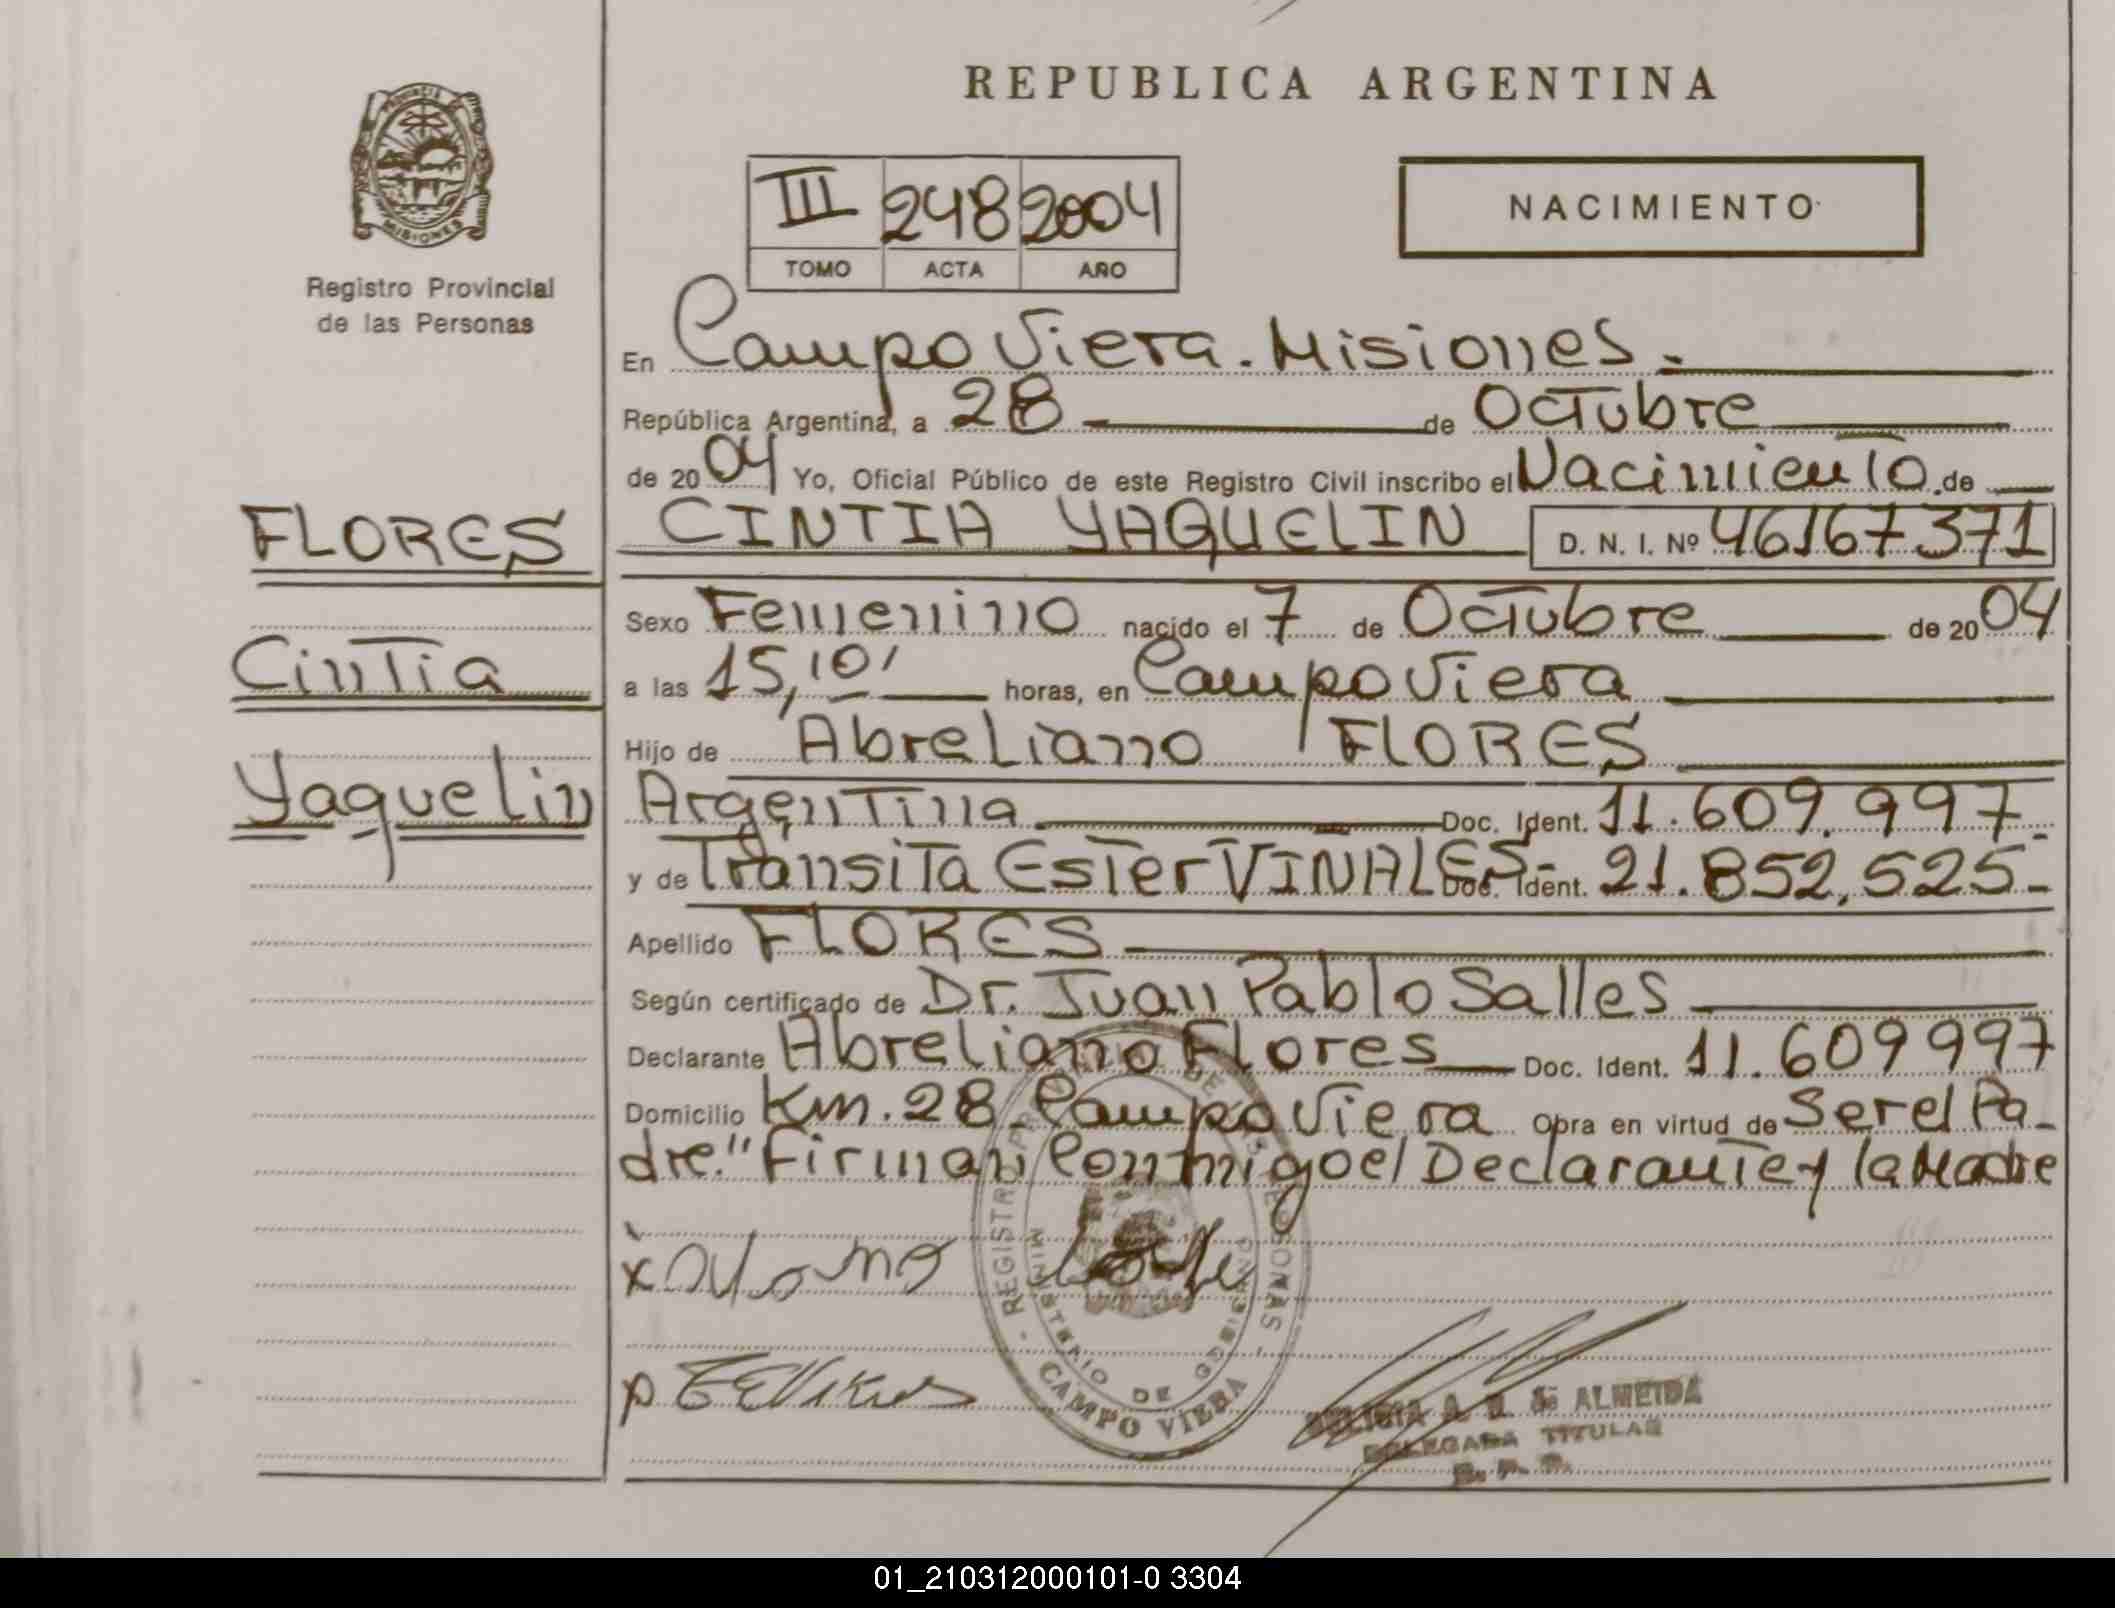 REPUBLICA ARGENTINA
PROVINCIA DE
MISIONES
Registro Provincial
de las Personas
III 248 2004
TOMO ACTA AÑO
NACIMIENTO
En Campo Viera. Misiones.
República Argentina, a 28 de Octubre
de 2004 Yo, Oficial Público de este Registro Civil inscribo el Nacimiento de
CINTIA YAQUELIN D. N. I. Nº 46167371
FLORES
Cintia
Yaquelin
Sexo Femenino nacido el 7 de Octubre de 2004
a las 15,10' horas, en Campo Viera
Hijo de Abreliano FLORES
Argentina Doc. Ident. 11.609.997.
y de Transita Ester VIÑALES- Doc. Ident. 21.852.525-
Apellido FLORES
Según certificado de Dr. Juan Pablo Salles
Declarante Abreliano Flores Doc. Ident. 11.609997
Domicilio Km. 28 Campo Viera Obra en virtud de Ser el Pa-
dre." Firman Conmigo el Declarante y la Madre
REGISTRO PROVINCIAL DE LAS PERSONAS
MINISTERIO DE GOBIERNO
CAMPO VIERA
A. D. de ALMEIDA
DELEGADA TITULAR
01_210312000101-0 3304